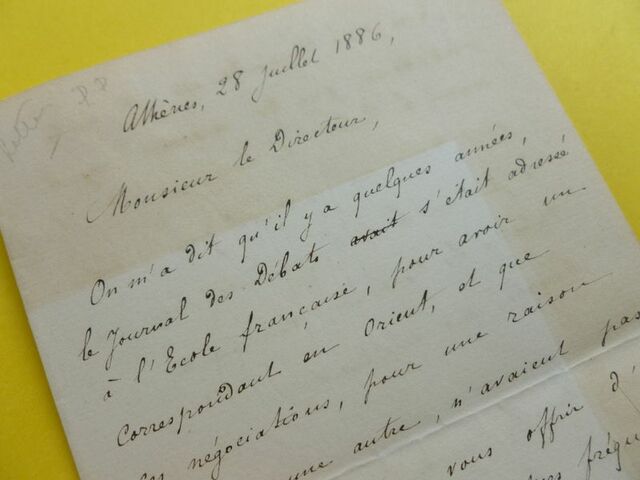 P P
Athènes, 28 juillet 1886,
Monsieur le Directeur,
On m'a dit qu'il y a quelques années,
le Journal des Débats avait s'était adressé
à l'Ecole française, pour avoir un
correspondant en Orient, et que
les négociations, pour une raison
une autre, n'avaient pas
vous offrir d'